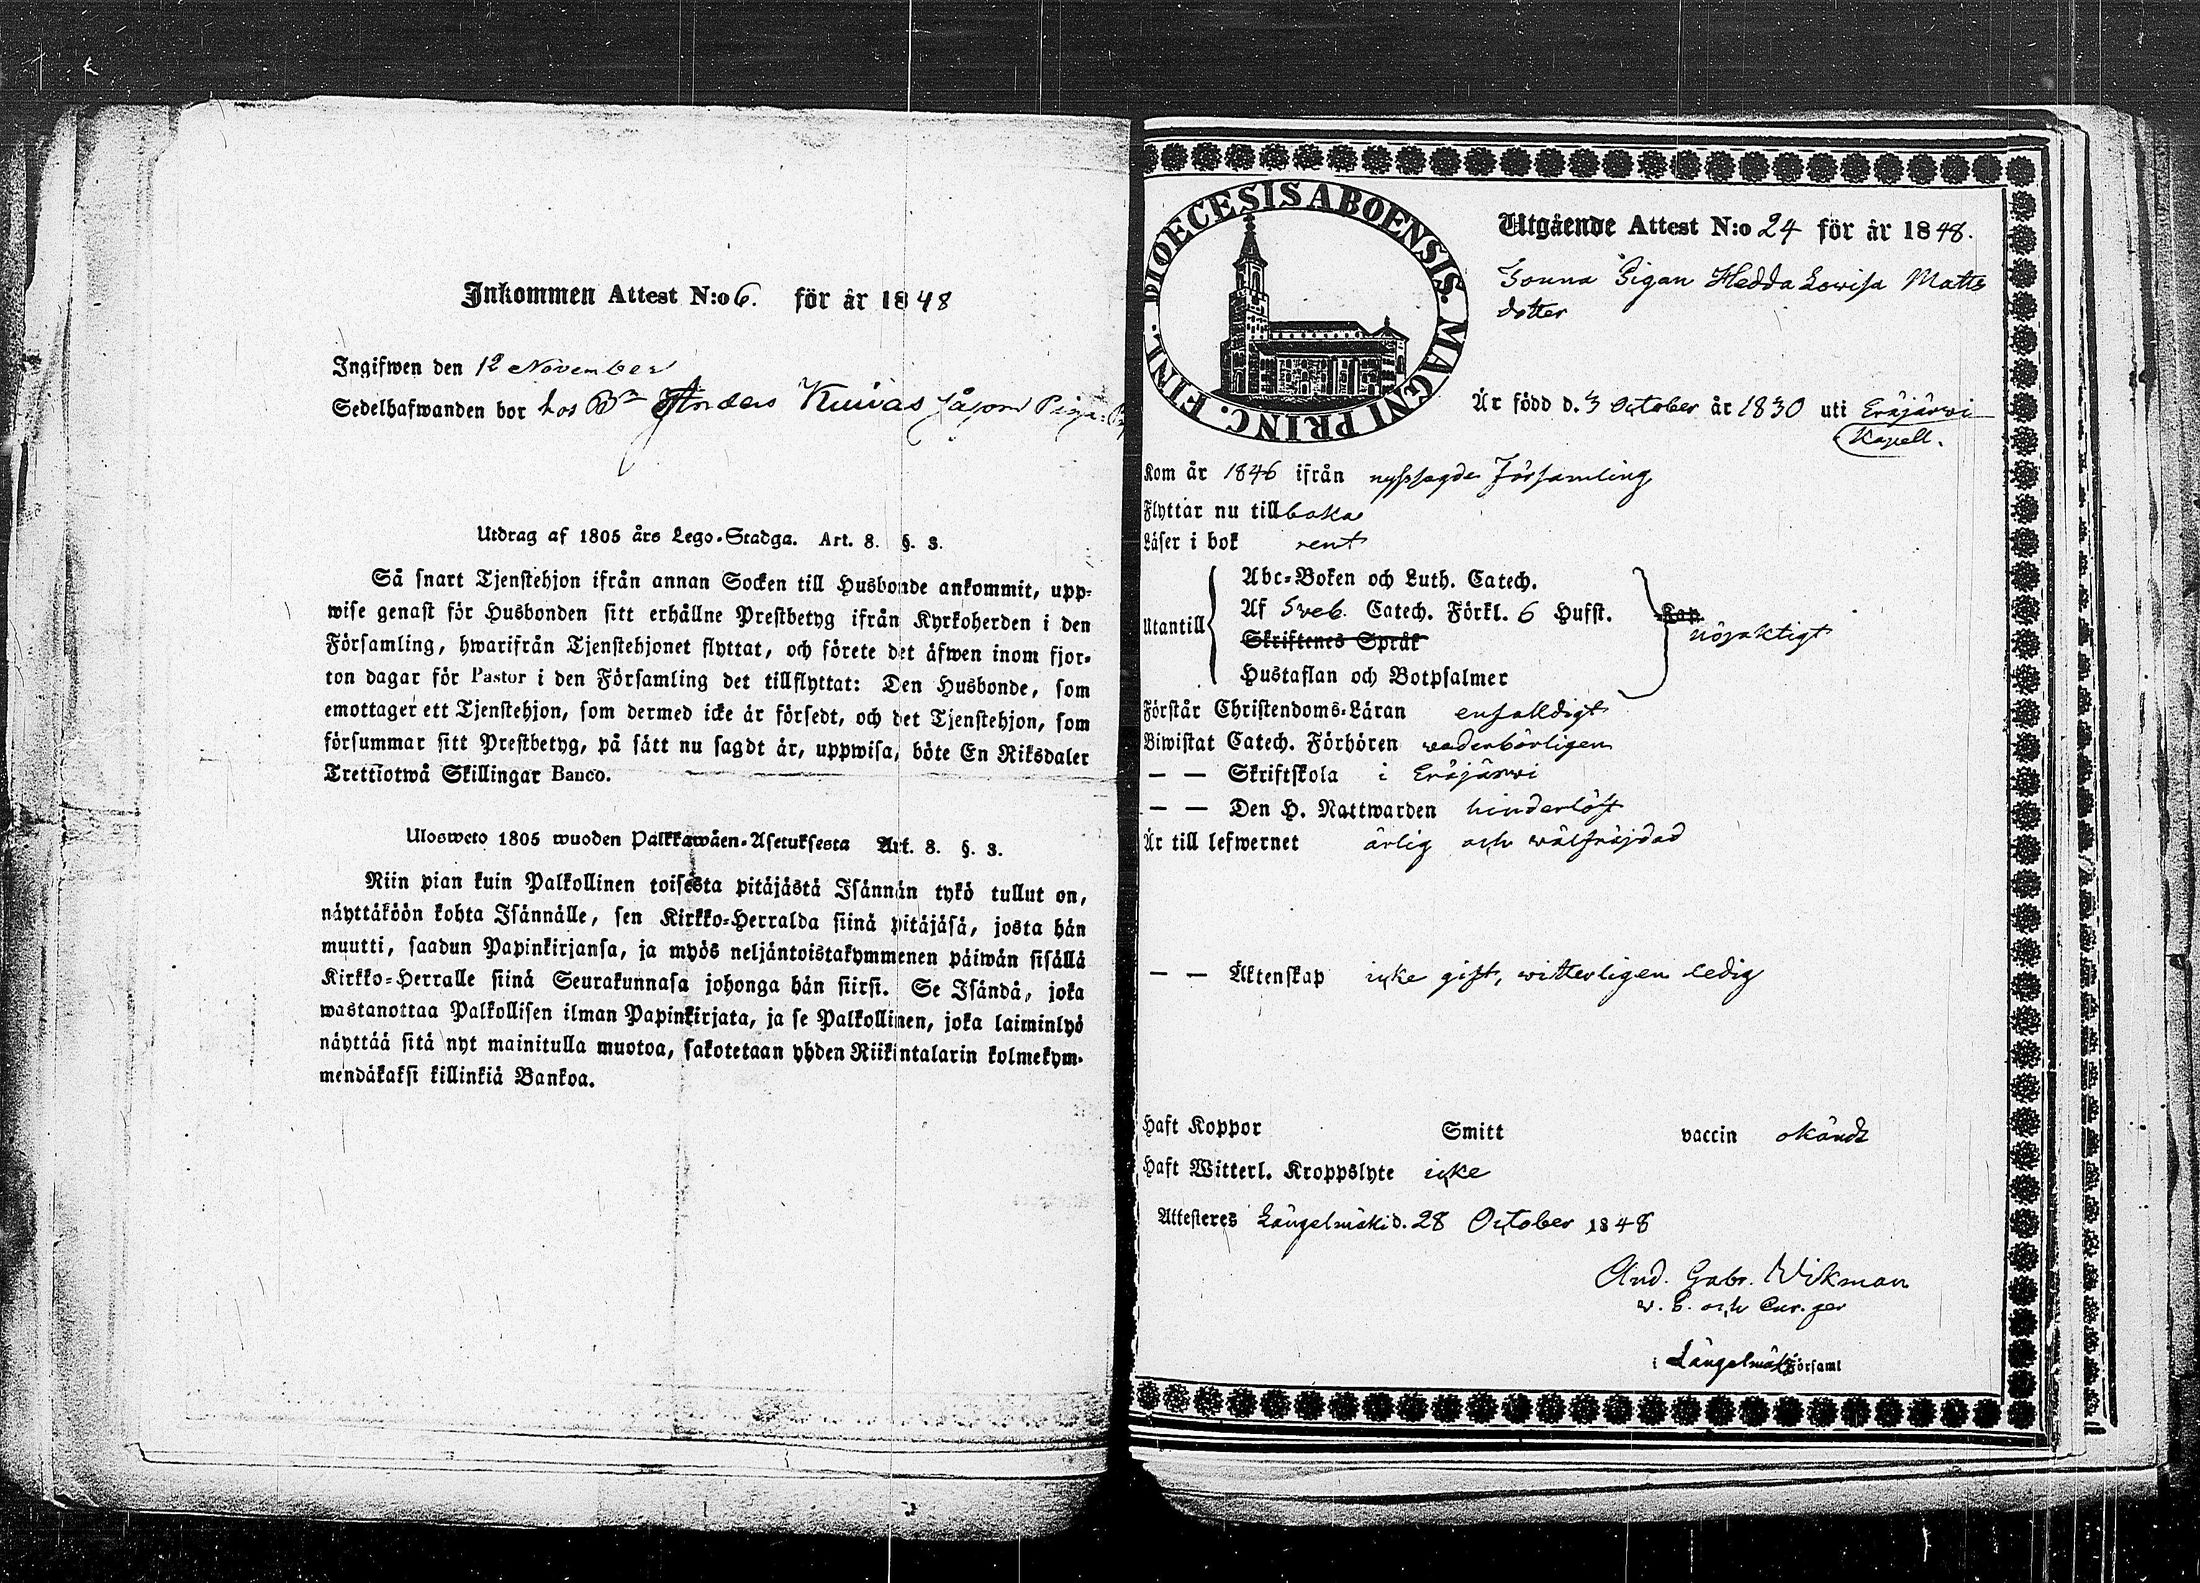 Inkommen Attest N:o 6. för år 1848
Ingifwen den 12 November
Sedelhafwanden bor hos Bn Anders Kuivas såsom Piga
Utdrag af 1805 års Lego-Stadga. Art. 8. §. 3.
Så snart Tjenstehjon ifrån annan Socken till Husbonde ankommit, upp-
wise genast för Husbonden sitt erhållne Prestbetyg ifrån Kyrkoherden i den
Församling, hwarifrån Tjenstehjonet flyttat, och förete det äfwen inom fjor-
ton dagar för Pastor i den Församling det tillflyttat: Den Husbonde, som
emottager ett Tjenstehjon, som dermed icke är försedt, och det Tjenstehjon, som
försummar sitt Prestbetyg, på sätt nu sagdt är, uppwisa, böte En Riksdaler
Trettiotwå Skillingar Banco.
Ulosweto 1805 wuoden Palkkawäen-Asetuksesta Art. 8. §. 3.
Niin pian kuin Palkollinen toisesta pitäjästä Isännän tykö tullut on,
näyttäköön kohta Isännälle, sen Kirkko-Herralda siinä pitäjäsä, josta hän
muutti, saadun Papinkirjansa, ja myös neljäntoistakymmenen päiwän sisällä
Kirkko-Herralle siinä Seurakunnasa johonga hän siirsi. Se Isändä, joka
wastanottaa Palkollisen ilman Papinkirjata, ja se Palkollinen, joka laiminlyö
näyttää sitä nyt mainitulla muotoa, sakotetaan yhden Riikintalarin kolmekym-
mendäkaksi killinkiä Bankoa.
DIOECESIS ABOENSIS. MAGNI PRINC. FINL.
Utgående Attest N:o 24 för år 1848.
Pigan Hedda Lovisa Matts
dotter
Är född d. 3 October år 1830 uti Eräjärwi
Kapell.
Kom år 1846 ifrån nyssagde Församling
Flyttar nu tillbaka
Läser i bok rent
Utantill
Abc-Boken och Luth. Catech.
Af Sveb. Catech. Förkl. 6 Hufst.
Skriftenes Språk
Hustaflan och Botpsalmer
nöjaktigt
Förstår Christendoms-Läran enfaldigt
Biwistat Catech. Förhören wederbörligen
— — Skriftskola i Eräjärwi
— — Den H. Nattwarden hinderlöst
Är till lefwernet ärlig och wälfräjdad
— — Äktenskap icke gift, witterligen ledig
Haft Koppor Smitt vaccin okändt
Haft Witterl. Kroppslyte icke
Attesteres Längelmäki d. 28 October 1848
And. Gabr. Wikman
i Längelmäki Församl